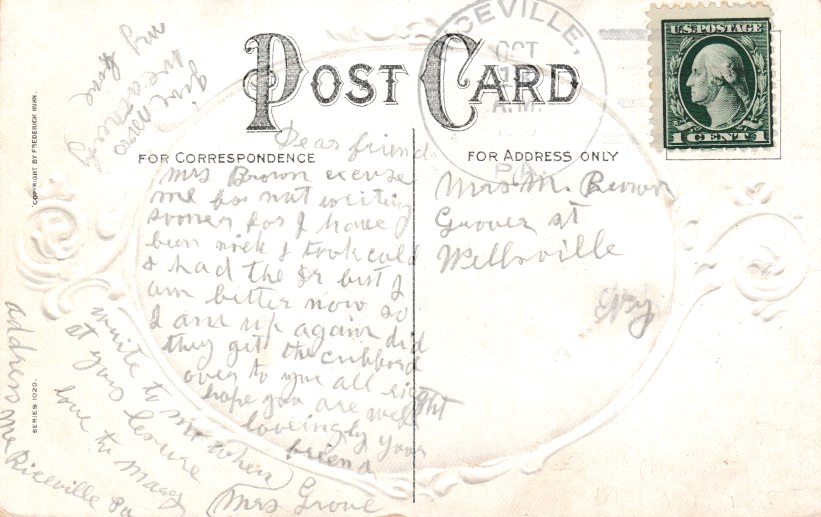 POST CARD
FOR CORRESPONDENCE
FOR ADDRESS ONLY
U.S. POSTAGE
1 CENT 1
CEVILLE,
OCT
A.M.
PA.
COPYRIGHT BY FREDERICK HUHN.
SERIES 1020.
Dear friend
Mrs Brown excuse
me for not writing
sooner for I have
been sick I took cold
& had the Gr but I
am better now so
I am up again did
they get the cubbord
over to you all right
hope you are well
loveingly your
friend
Mrs Grove
write to me when
at your lesure
love to Mary
address me Riceville Pa
give
my love
Mrs M. Brown
Grover st
Wellsville
N.y